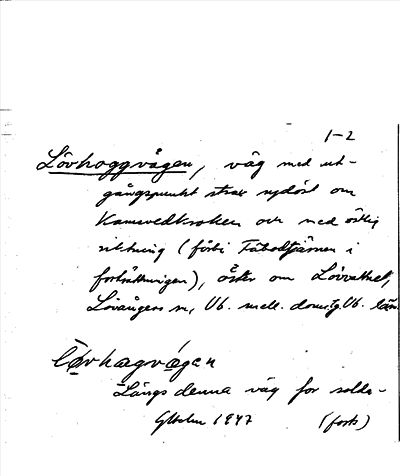 1-2
Lövhoggvågen, väg med ut-
gångspunkt strax sydost om
Kamvedkroken och med östlig
riktning (förbi Täbodtjärnen i
fortsättningen), öster om Lövvattnet,
Lövångers sn, Vb. mell. domsg. Vb. län.
lövhagvágen
Längs denna väg for solda-
1947 (forts)